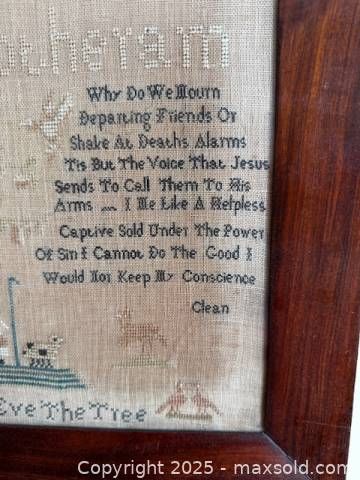 otheram
Why Do We Mourn
Departing Friends Or
Shake At Deaths Alarms
Tis But The Voice That Jesus
Sends To Call Them To His
Arms I Me Like A Helpless
Captive Sold Under The Power
Of Sin I Cannot Do The Good I
Would Nor Keep My Conscience
Clean
Eve The Tree
Copyright © 2025 - maxsold.com